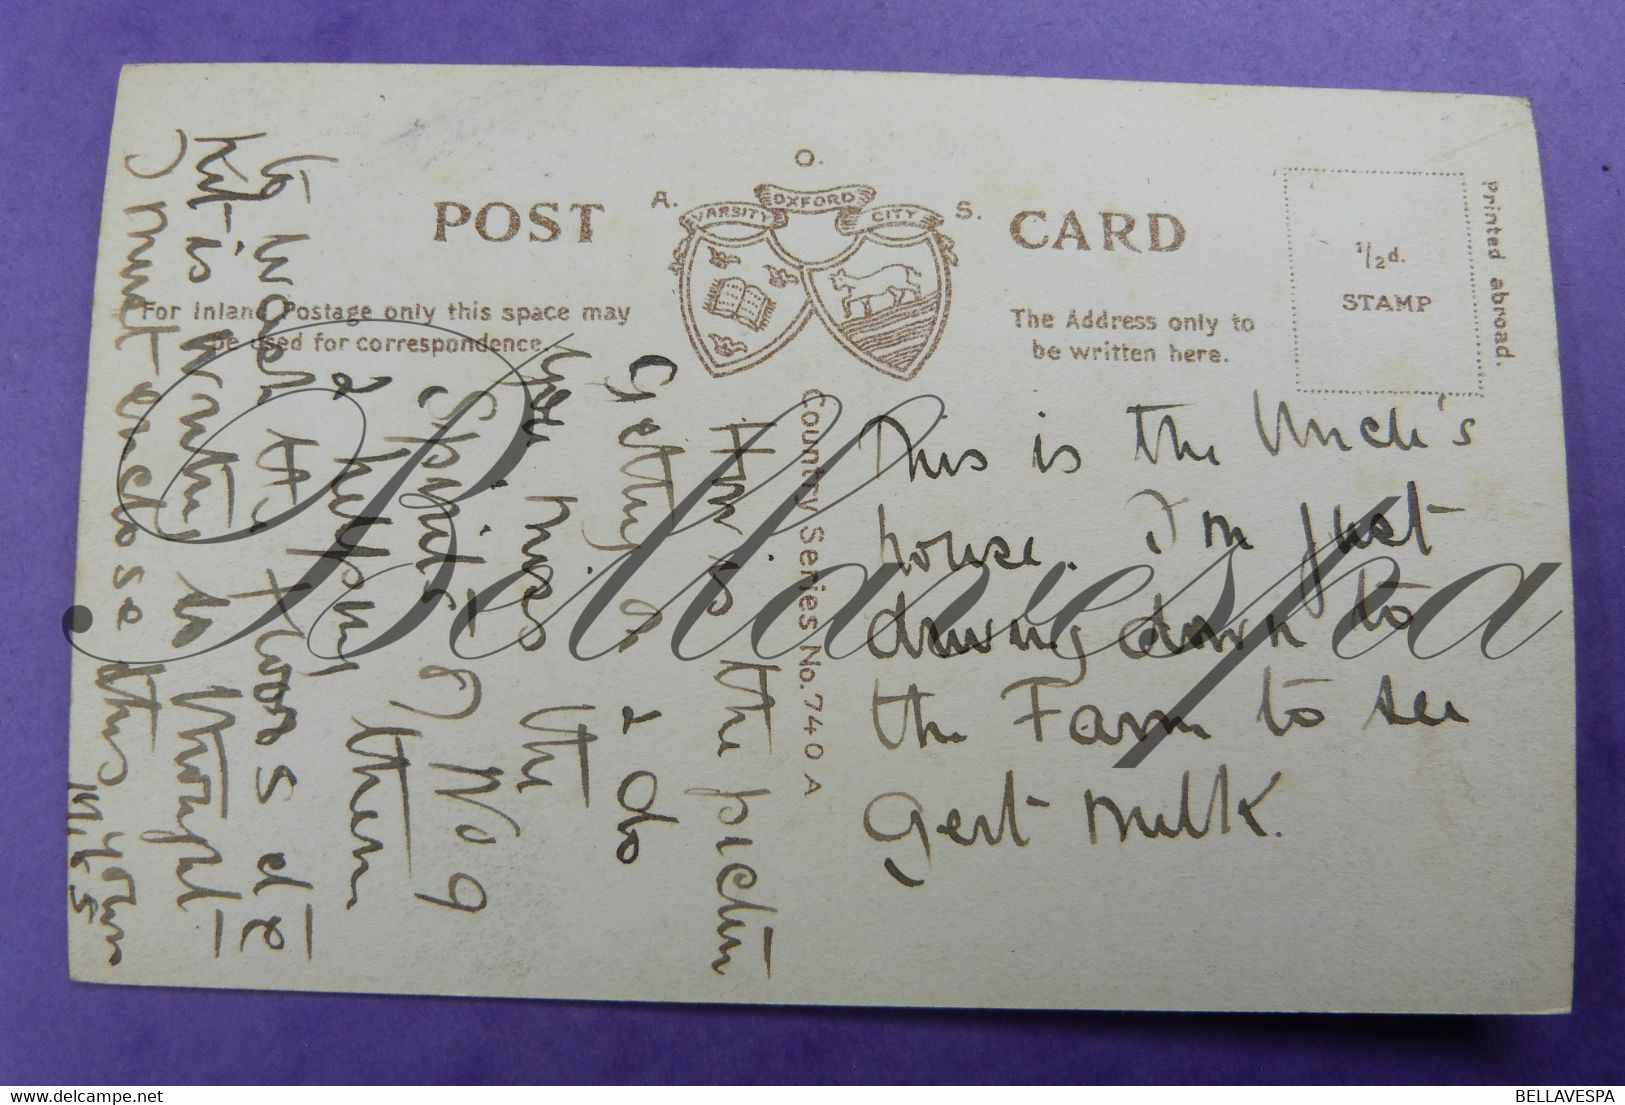 POST CARD
A. O. S.
VARSITY OXFORD CITY
For Inland Postage only this space may
be used for correspondence.
The Address only to
be written here.
1/2d.
STAMP
Printed abroad.
Country Series No. 740 A
This is the Uncle's
house. I'm just
driving down to
the Farm to see
Gert milk.
How is the picture
Getting on & do
you miss the
Spirits of No 9
& helping them
to wash the floors etc
Kit is writing to
I must enclose this
Bellavespa
BELLAVESPA